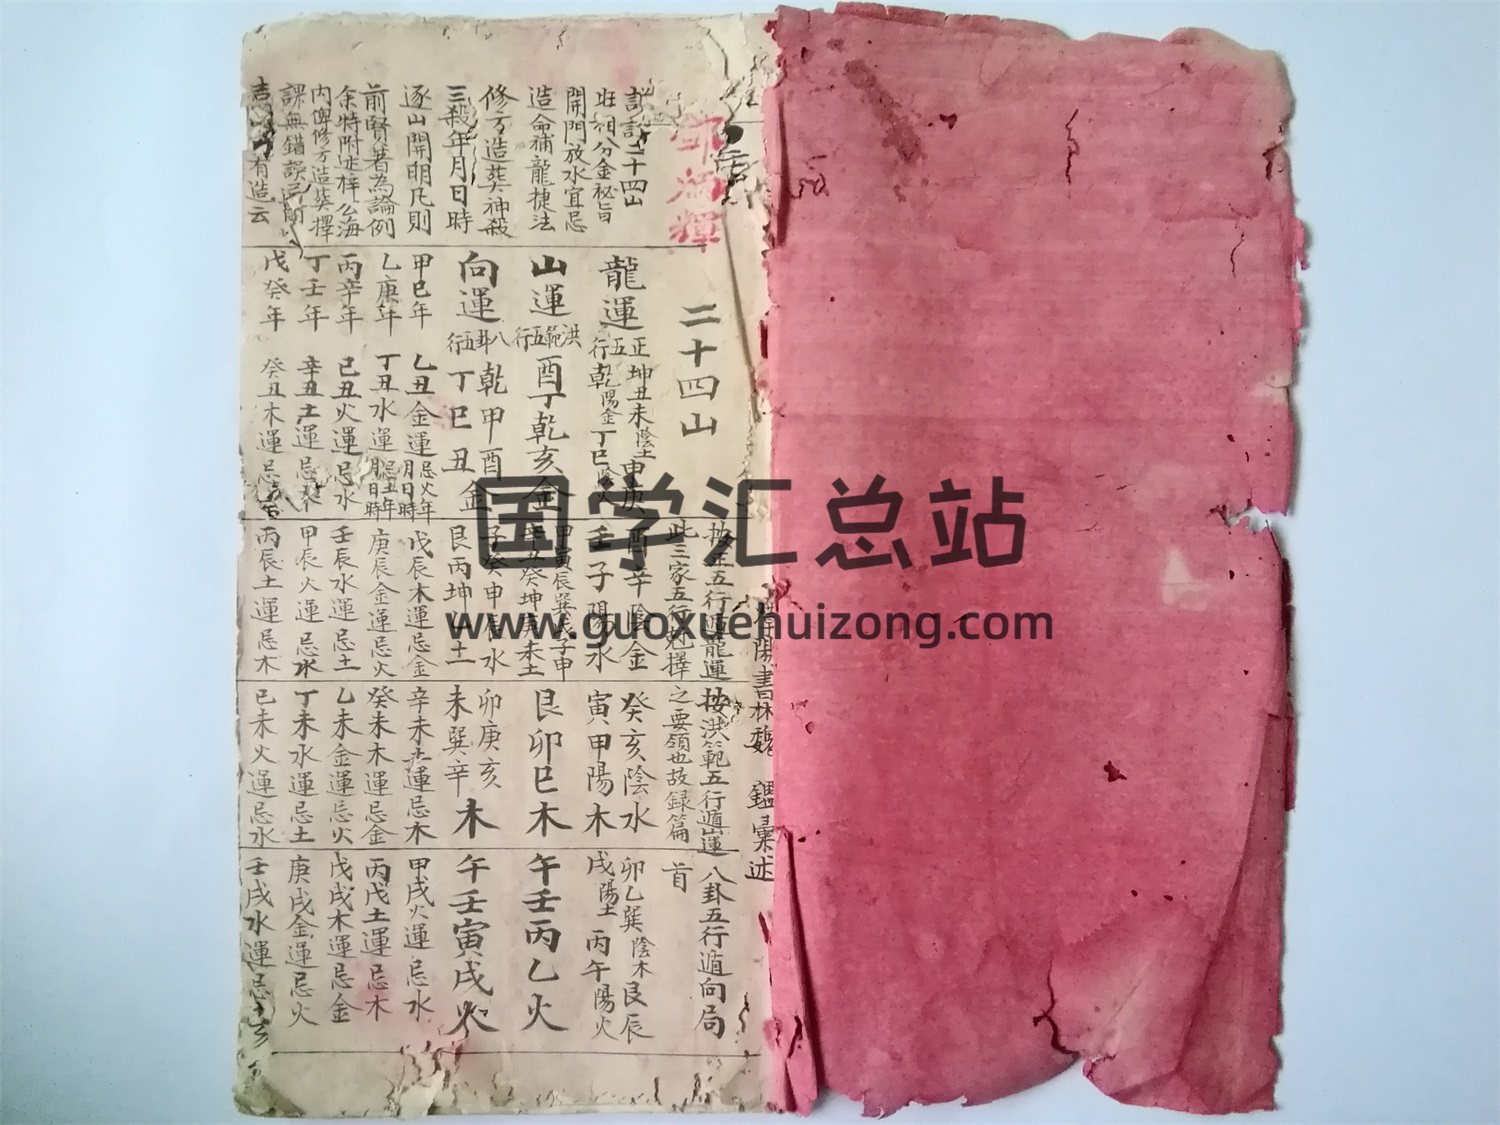 潭陽書林魏 鑑彙述
邱 輝
訂註二十四山
旺相分金秘旨
開門放水宜忌
造命補龍捷法
修方造葬神殺
三殺年月日時
逐山開明凡則
前賢著為論例
余特附 梓 海
內俾修方造葬擇
課無錯誤
有造云
二十四山
按正五行遁龍運 按洪範五行遁山運 八卦五行遁向局
此三家五行剋擇之要領也故録篇首
龍運 正五行 坤丑未陰土 申庚
乾陽金 丁巳陰火
酉辛陰金 癸亥陰水 卯乙巽陰木 艮辰
壬子陽水 寅甲陽木 戌陽土 丙午陽火
山運 洪範五行 酉丁乾亥金 甲寅辰巽戌子申
辛丑癸坤庚未土 艮卯巳木 午壬丙乙火
向運 八卦五行 乾甲酉金 子癸申辰水 卯庚亥
丁巳丑 艮丙坤乙土 未巽辛木 午壬寅戌火
甲己年 乙丑金運忌火年月日時 戊辰木運忌金 辛未土運忌木 甲戌火運忌水
乙庚年 丁丑水運忌土年月日時 庚辰金運忌火 癸未木運忌金 丙戌土運忌木
丙辛年 己丑火運忌水 壬辰水運忌土 乙未金運忌火 戊戌木運忌金
丁壬年 辛丑土運忌 甲辰火運忌水 丁未水運忌土 庚戌金運忌火
戊癸年 癸丑木運忌 丙辰土運忌木 己未火運忌水 壬戌水運忌土
国学汇总站
www.guoxuehuizong.com